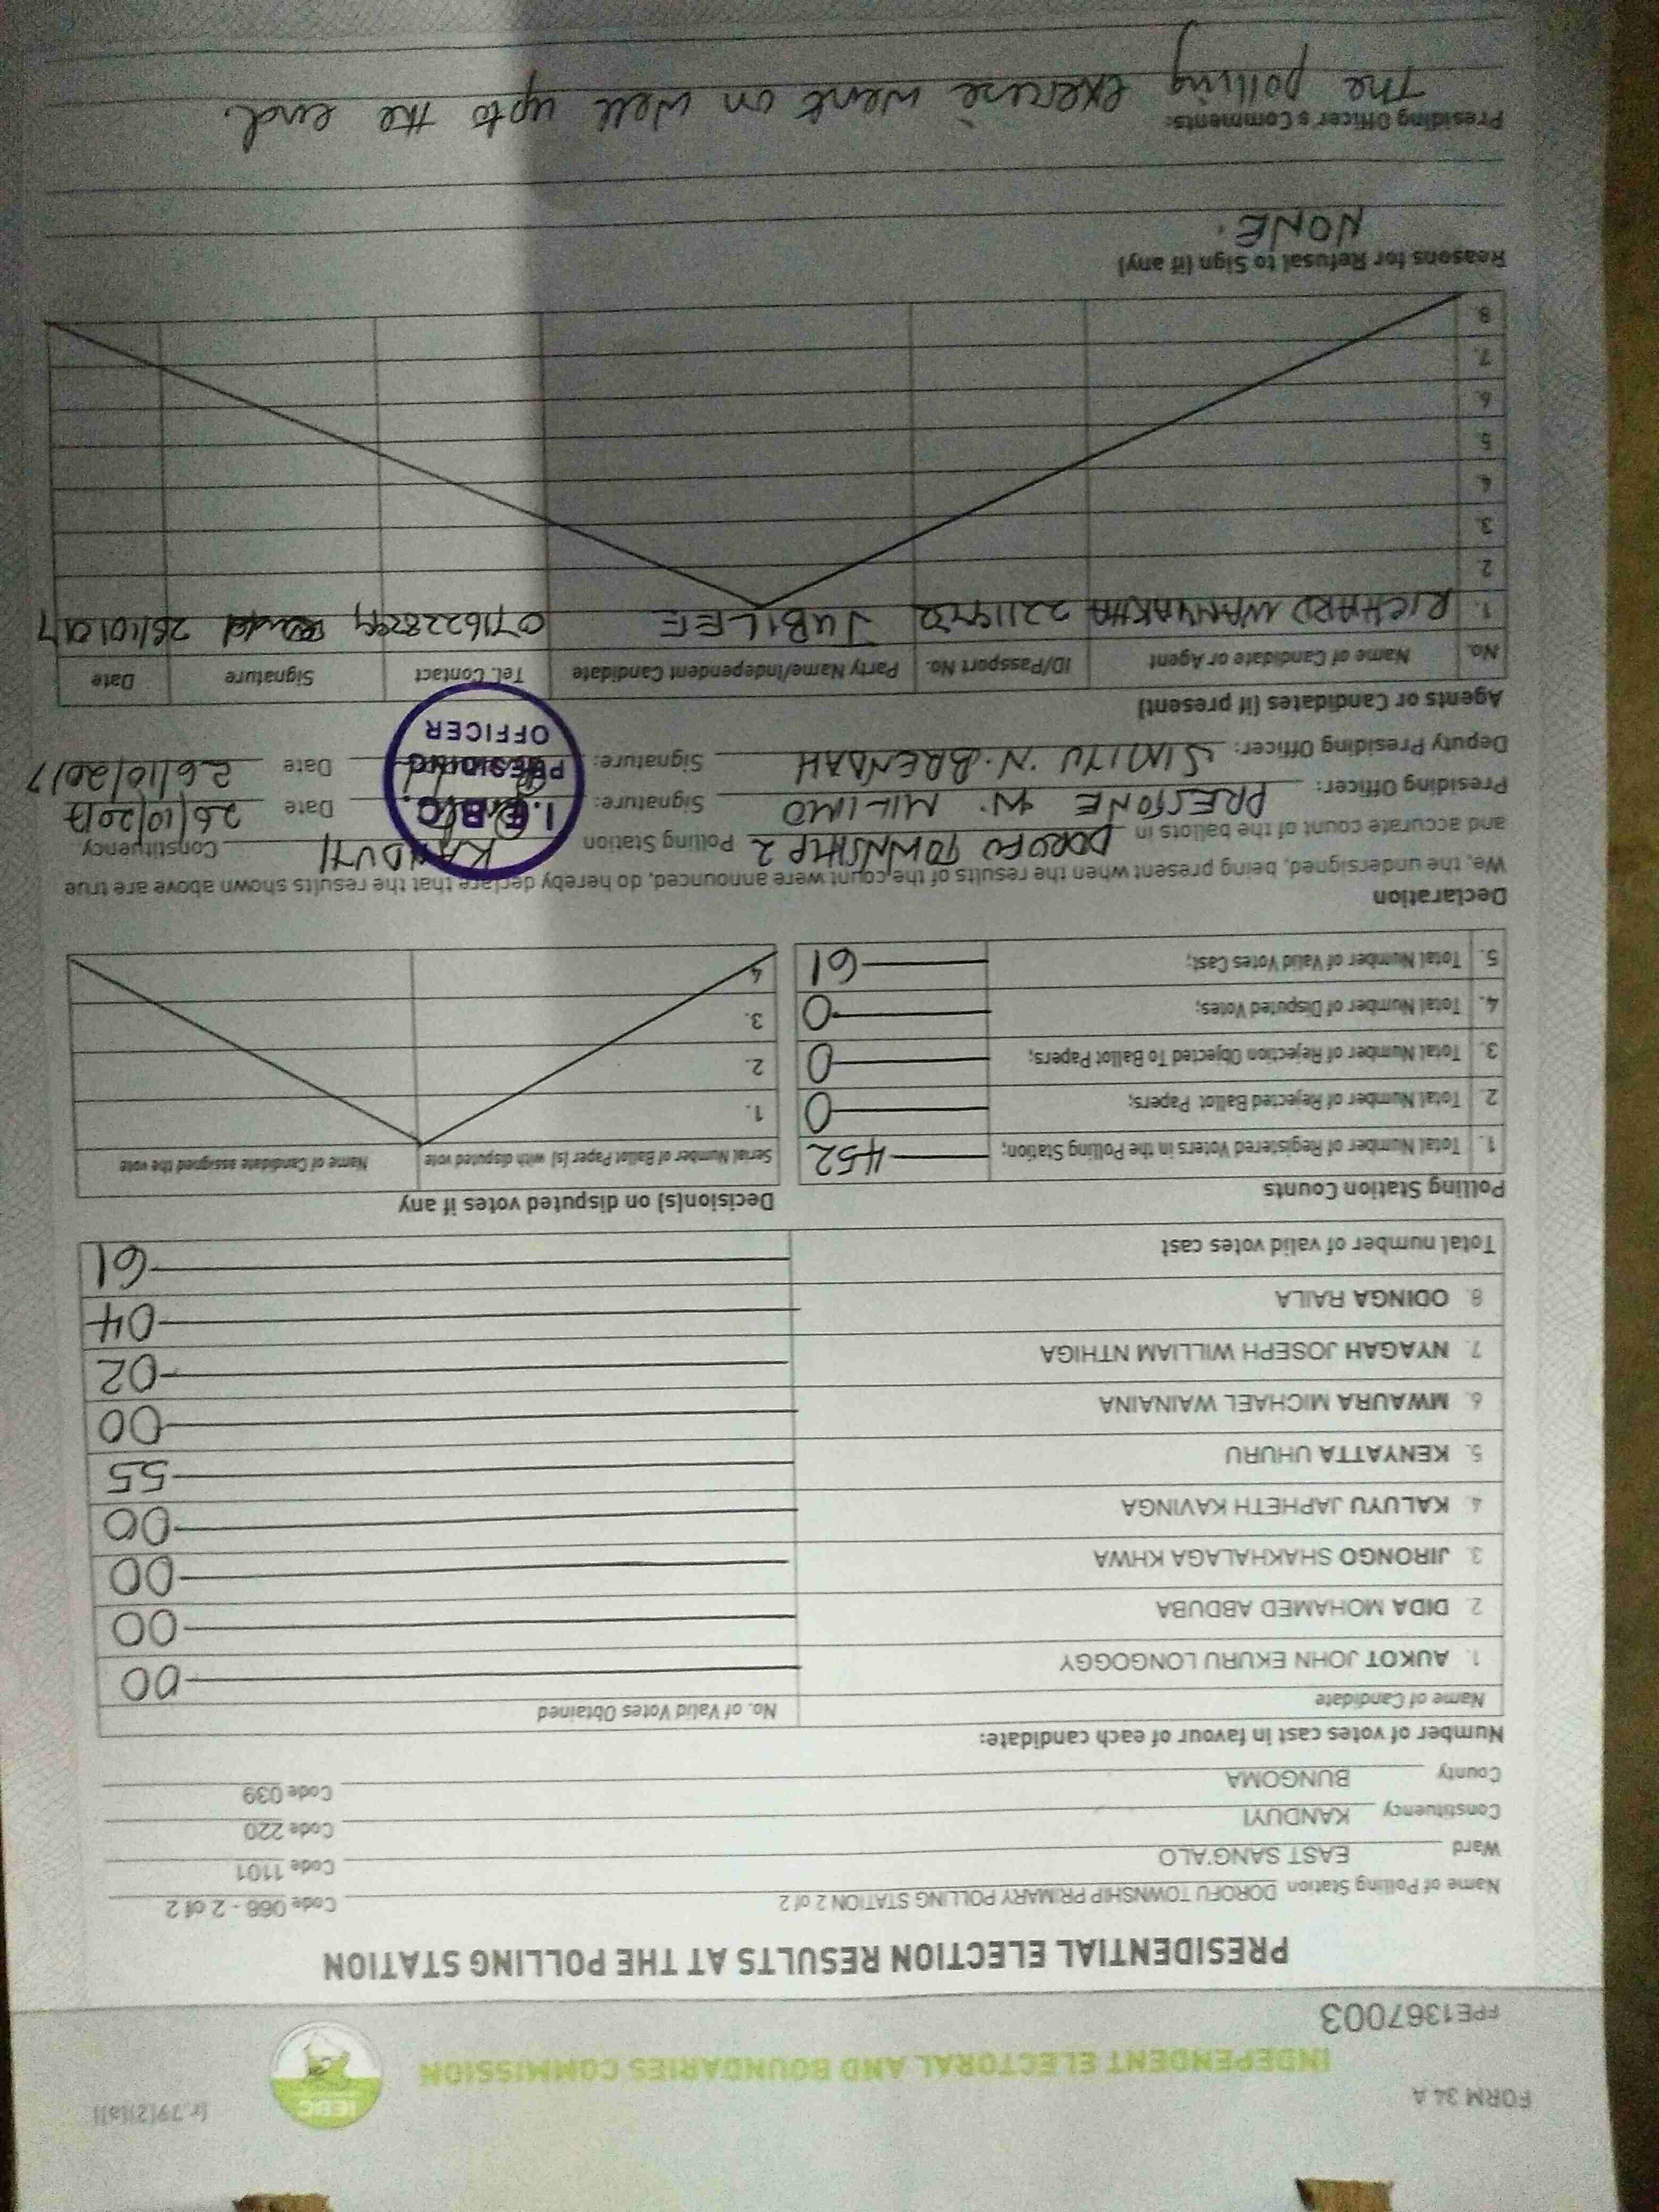 FORM 34 A
[r.79(2)(a)]
IEBC
INDEPENDENT ELECTORAL AND BOUNDARIES COMMISSION
FPE1367003
PRESIDENTIAL ELECTION RESULTS AT THE POLLING STATION
Name of Polling Station DOROFU TOWNSHIP PRIMARY POLLING STATION 2 of 2 Code 066 - 2 of 2
Ward EAST SANG'ALO Code 1101
Constituency KANDUYI Code 220
County BUNGOMA Code 039
Number of votes cast in favour of each candidate:
Name of Candidate No. of Valid Votes Obtained
1. AUKOT JOHN EKURU LONGOGGY 00
2. DIDA MOHAMED ABDUBA 00
3. JIRONGO SHAKHALAGA KHWA 00
4. KALUYU JAPHETH KAVINGA 00
5. KENYATTA UHURU 55
6. MWAURA MICHAEL WAINAINA 00
7. NYAGAH JOSEPH WILLIAM NTHIGA 02
8. ODINGA RAILA 04
Total number of valid votes cast 61
Polling Station Counts
1. Total Number of Registered Voters in the Polling Station; 452
2. Total Number of Rejected Ballot Papers; 0
3. Total Number of Rejection Objected To Ballot Papers; 0
4. Total Number of Disputed Votes; 0
5. Total Number of Valid Votes Cast; 61
Decision(s) on disputed votes if any
Serial Number of Ballot Paper (s) with disputed vote Name of Candidate assigned the vote
1.
2.
3.
4
Declaration
We, the undersigned, being present when the results of the count were announced, do hereby declare that the results shown above are true
and accurate count of the ballots in DOROFU TOWNSHIP 2 Polling Station KANDUYI Constituency
Presiding Officer: PRESTONE W. MILIMO Signature: Date 26/10/2017
Deputy Presiding Officer: SIMIYU N. BRENDAH Signature: Date 26/10/2017
I.E.B.C.
PRESIDING
OFFICER
Agents or Candidates (if present)
No. Name of Candidate or Agent ID/Passport No. Party Name/Independent Candidate Tel. Contact Signature Date
1. RICHARD WANYAKHA JUBILEE
2
3.
4.
5.
6.
7.
8.
Reasons for Refusal to Sign (if any)
NONE.
Presiding Officer's Comments:
The polling exercise went on well upto the end.